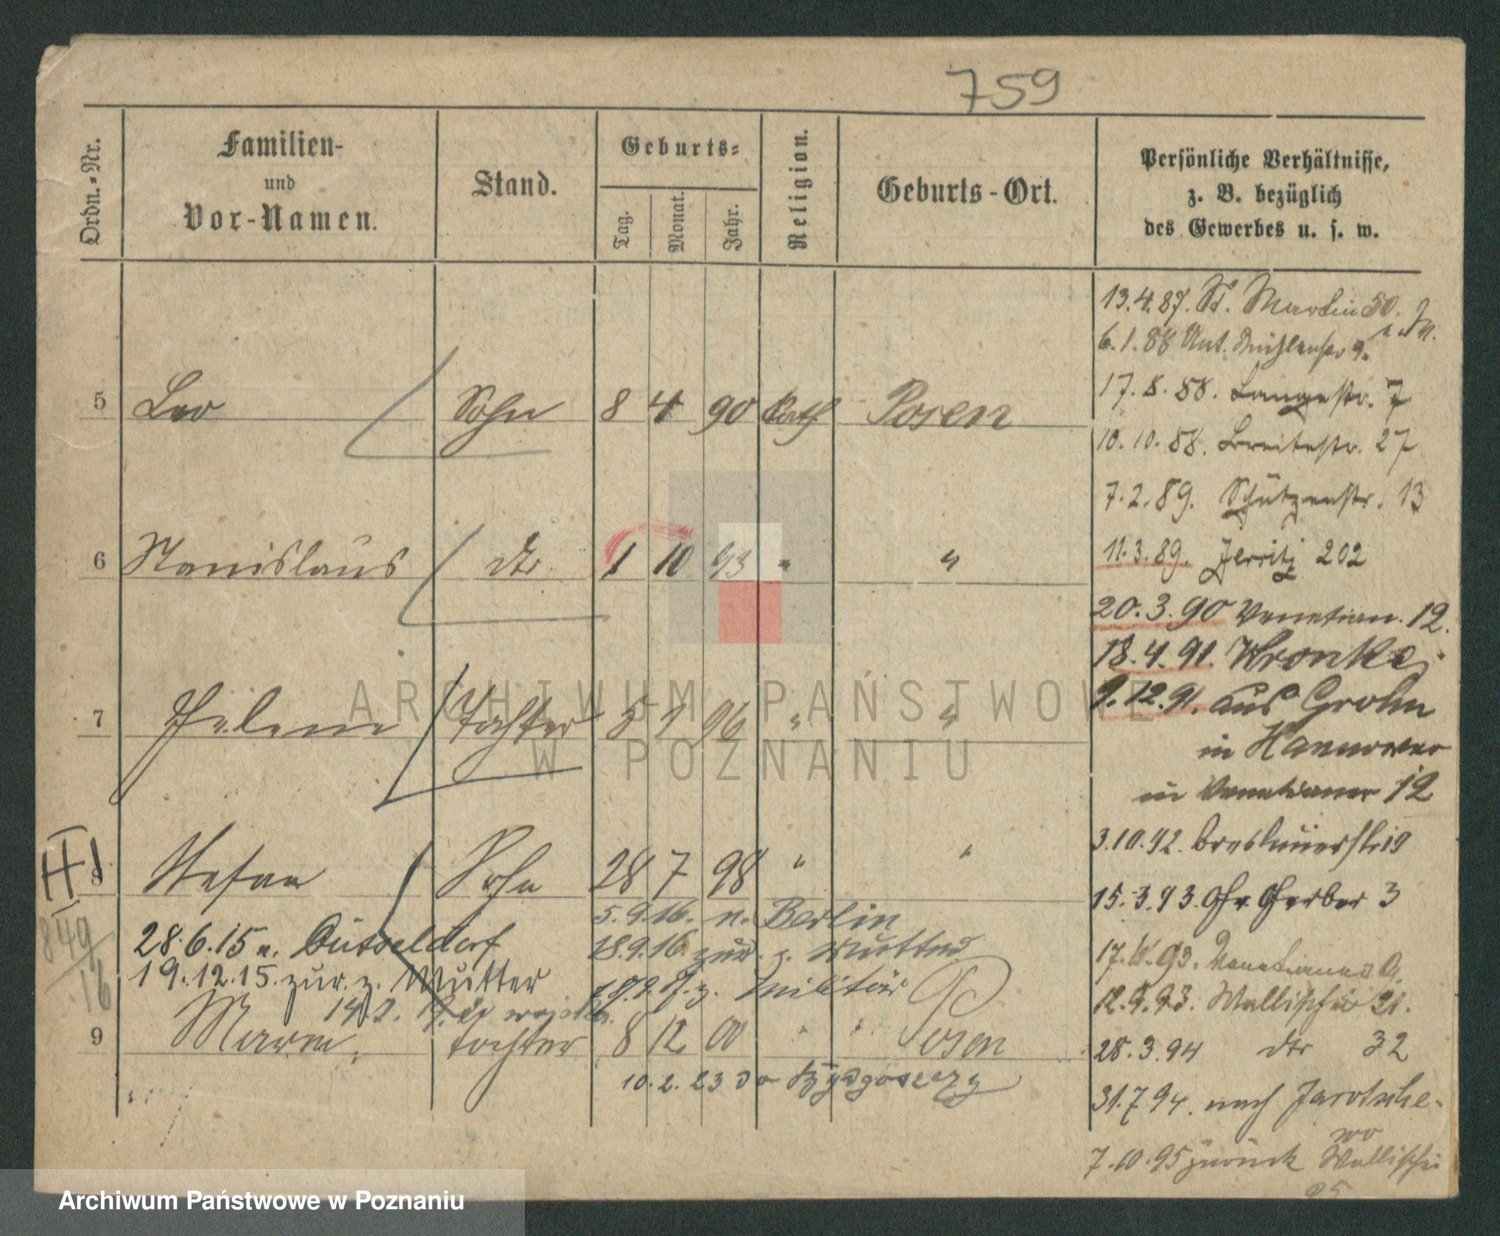 759
Ordn.-Nr.
Familien-
und
Vor-Namen.
Stand.
Geburts-
Tag.
Monat.
Jahr.
Religion.
Geburts-Ort.
Persönliche Verhältnisse,
z. B. bezüglich
des Gewerbes u. s. w.
5 Leo Sohn 8 4 90 Kath Posen
6 Stanislaus dto 1 10 93 " "
7 Helene Tochter 5 2 96 " "
8 Stefan Sohn 28 7 98 " "
849
16
28.6.15 n. Düsseldorf
19.12.15. zur. z. Mutter
5.9.16. n. Berlin
18.9.16. zur. z. Mutter
z. Militär
9 Marie Tochter 8 12 00 " " Posen
10.2.23 do Bydgoszczy
13.4.87. St. Martin 50.
6.1.88 Unt. Mühlenstr 9.
17.8.88. Langestr. 7
10.10.88. Breitestr. 27
7.2.89. Schützenstr. 13
11.3.89. Jersitz 202
20.3.90 Venetian. 12.
18.4.91. Wronke
9.12.91. aus Grohn
in Hannover
in Venetianer 12
3.10.92. Breslauerstr 19
15.3.93. Gr. Gerber 3
17. 93. Venetianer 9
12.9.93. Wallischei 21.
28.3.94 dto 32
31.7.94. nach Jarotsche-
wo
7.10.95 zurück Wallischei
95
Archiwum Państwowe w Poznaniu
ARCHIWUM PAŃSTWOWE
W POZNANIU